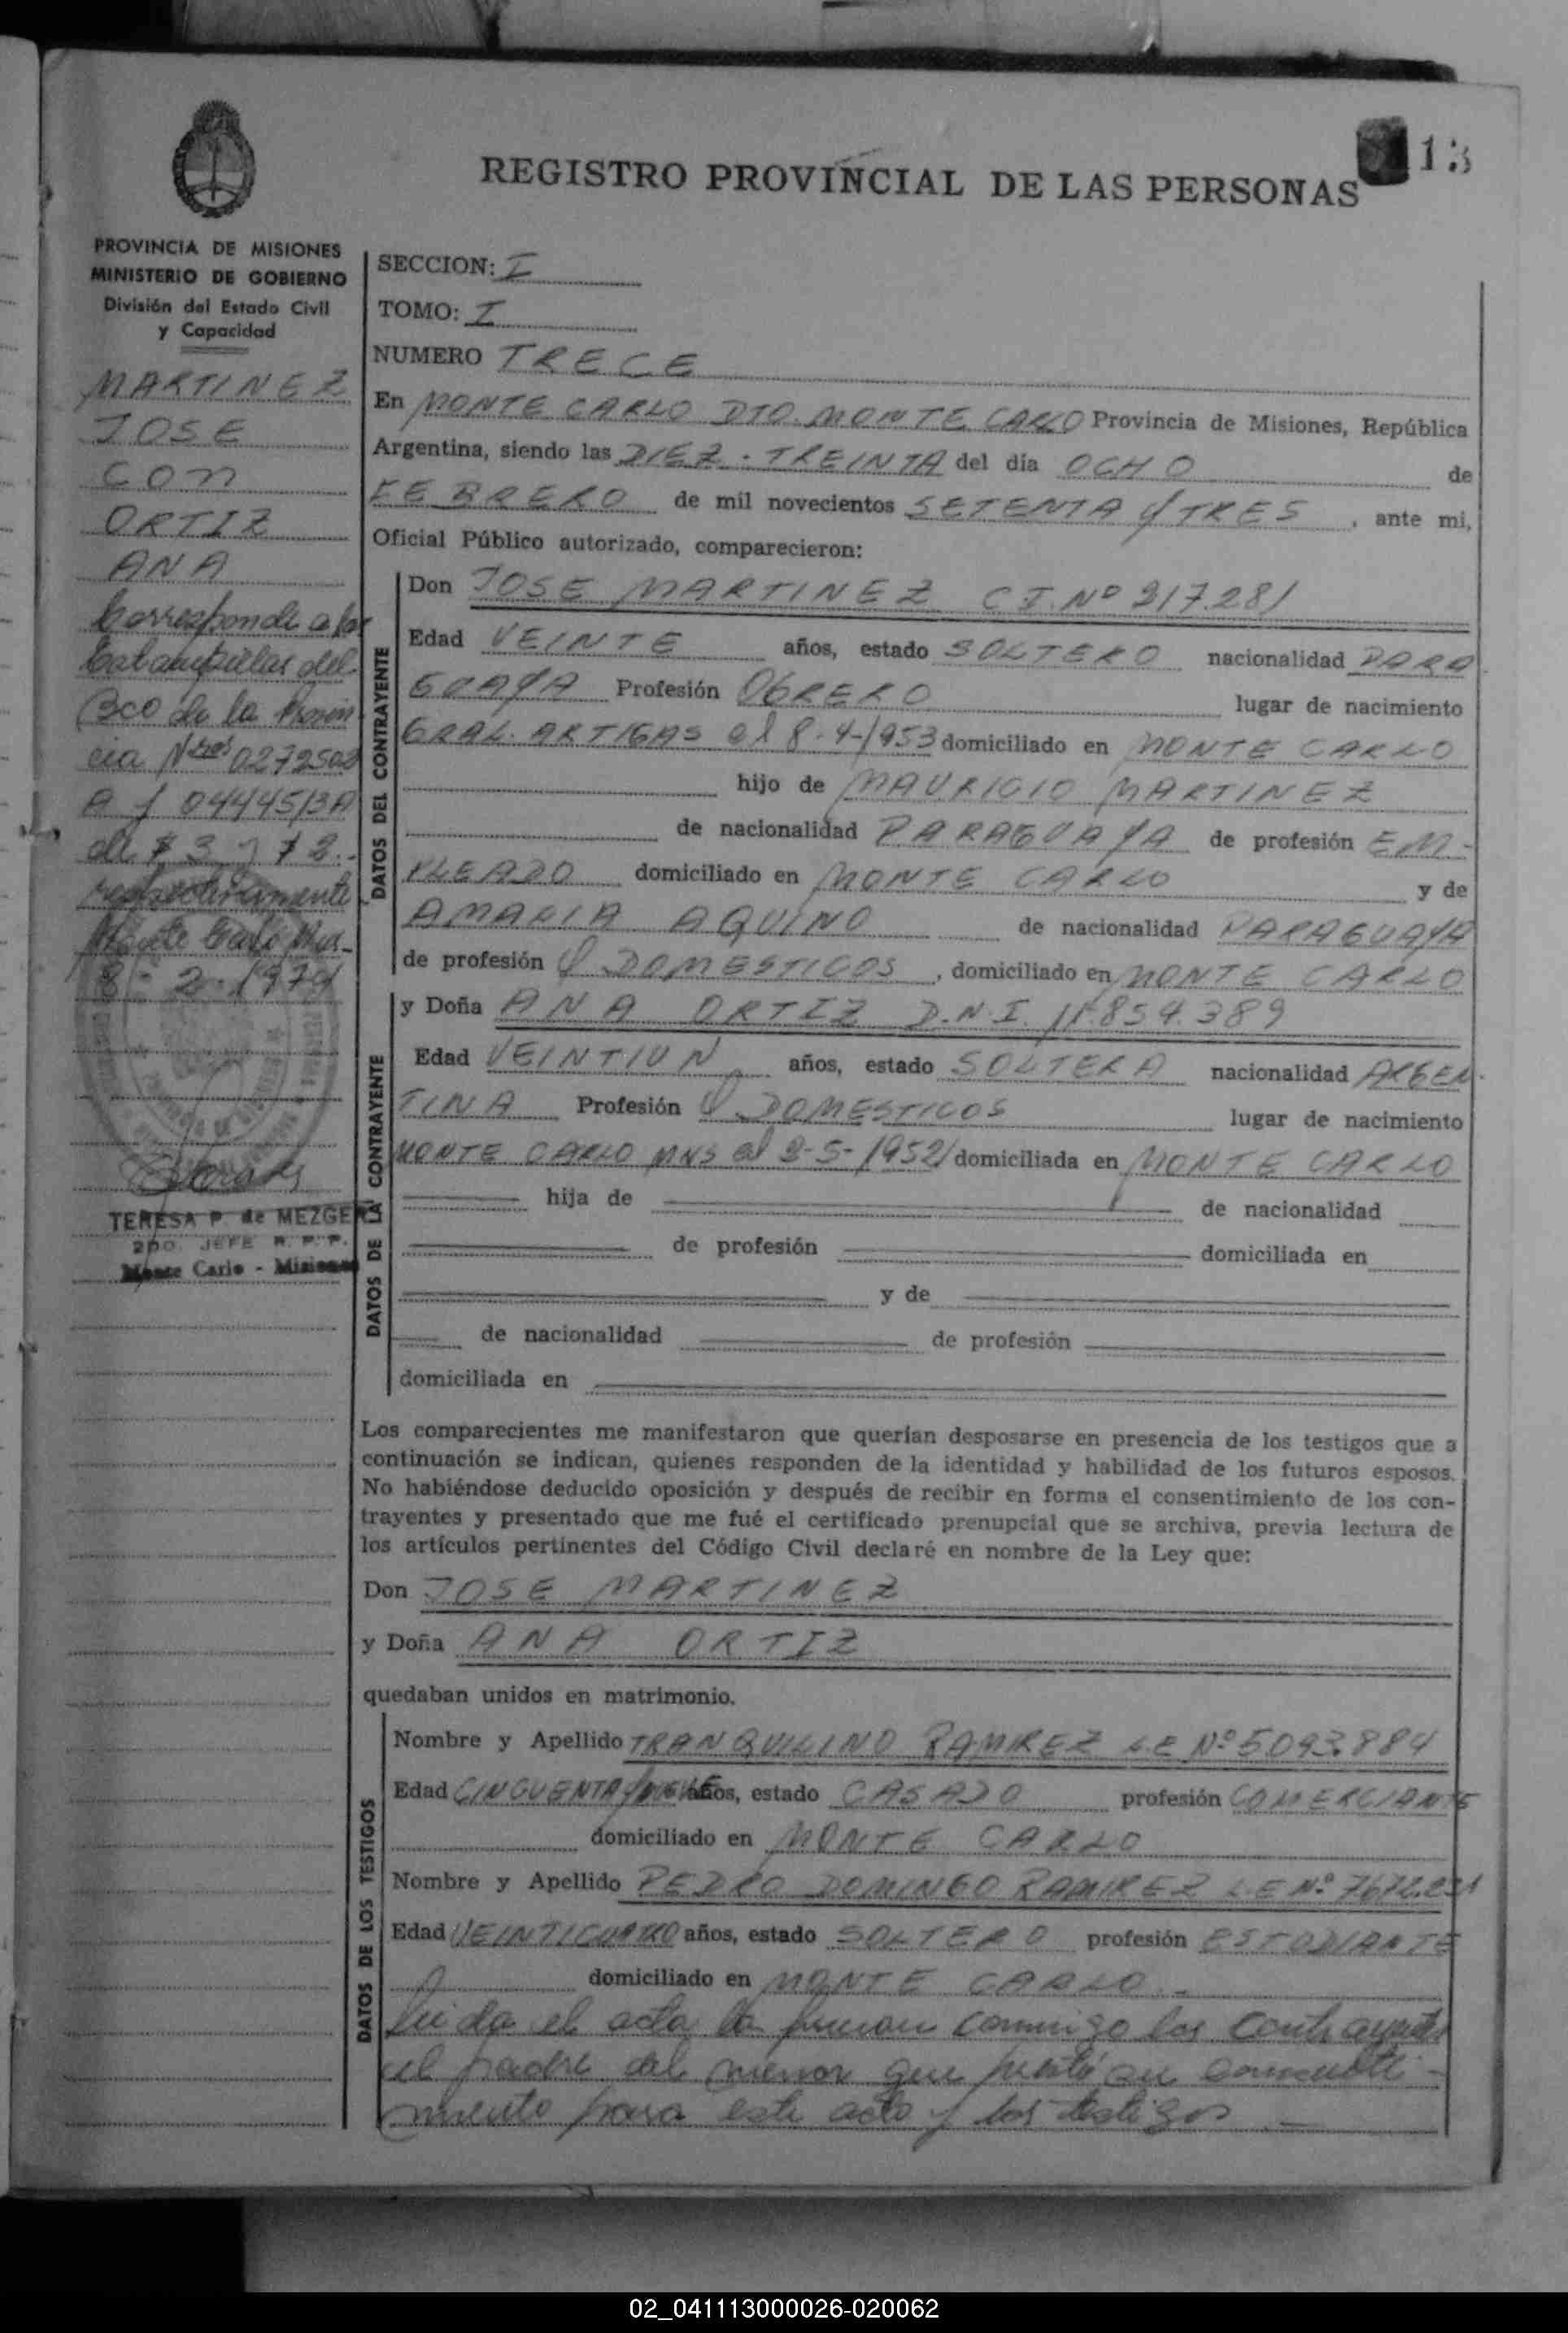 13
REGISTRO PROVINCIAL DE LAS PERSONAS
PROVINCIA DE MISIONES
MINISTERIO DE GOBIERNO
División del Estado Civil
y Capacidad
MARTINEZ
JOSE
CON
ORTIZ
ANA
Corresponde a las
Estampillas del
Bco de la Provin
cia Nros 0272502
A y 0444513A
de $ 3 y $ 2.-
respectivamente
Monte Carlo Mns.
8 - 2 - 197
TERESA P. de MEZGER
2DO. JEFE R. P. P.
Monte Carlo - Misiones
SECCION: I
TOMO: I
NUMERO TRECE
En MONTE CARLO DTO. MONTE CARLO Provincia de Misiones, República
Argentina, siendo las DIEZ - TREINTA del día OCHO de
FEBRERO de mil novecientos SETENTA Y TRES, ante mi,
Oficial Público autorizado, comparecieron:
DATOS DEL CONTRAYENTE
Don JOSE MARTINEZ C.I. Nº 317.281
Edad VEINTE años, estado SOLTERO nacionalidad PARA
GUAYA Profesión OBRERO lugar de nacimiento
GRAL. ARTIGAS el 8-4-1953 domiciliado en MONTE CARLO
hijo de MAURICIO MARTINEZ
de nacionalidad PARAGUAYA de profesión EM-
PLEADO domiciliado en MONTE CARLO y de
AMALIA AQUINO de nacionalidad PARAGUAYA
de profesión Q DOMESTICOS, domiciliado en MONTE CARLO
DATOS DE LA CONTRAYENTE
y Doña ANA ORTIZ D.N.I. 11.854.389
Edad VEINTIUN años, estado SOLTERA nacionalidad ARGEN-
TINA Profesión Q DOMESTICOS lugar de nacimiento
MONTE CARLO MNS el 2-5-1952 domiciliada en MONTE CARLO
hija de de nacionalidad
de profesión domiciliada en
y de
de nacionalidad de profesión
domiciliada en
Los comparecientes me manifestaron que querían desposarse en presencia de los testigos que a
continuación se indican, quienes responden de la identidad y habilidad de los futuros esposos.
No habiéndose deducido oposición y después de recibir en forma el consentimiento de los con-
trayentes y presentado que me fué el certificado prenupcial que se archiva, previa lectura de
los artículos pertinentes del Código Civil declaré en nombre de la Ley que:
Don JOSE MARTINEZ
y Doña ANA ORTIZ
quedaban unidos en matrimonio.
DATOS DE LOS TESTIGOS
Nombre y Apellido TRANQUILINO RAMIREZ L.E Nº 5.093.884
Edad CINCUENTA Y NUEVE años, estado CASADO profesión COMERCIANTE
domiciliado en MONTE CARLO
Nombre y Apellido PEDRO DOMINGO RAMIREZ L.E Nº
Edad VEINTICUATRO años, estado SOLTERO profesión ESTUDIANTE
domiciliado en MONTE CARLO.-
Leida el acta la firman conmigo los contrayentes
el padre del menor que prestó su consenti-
miento para este acto y los testigos
02_041113000026-020062